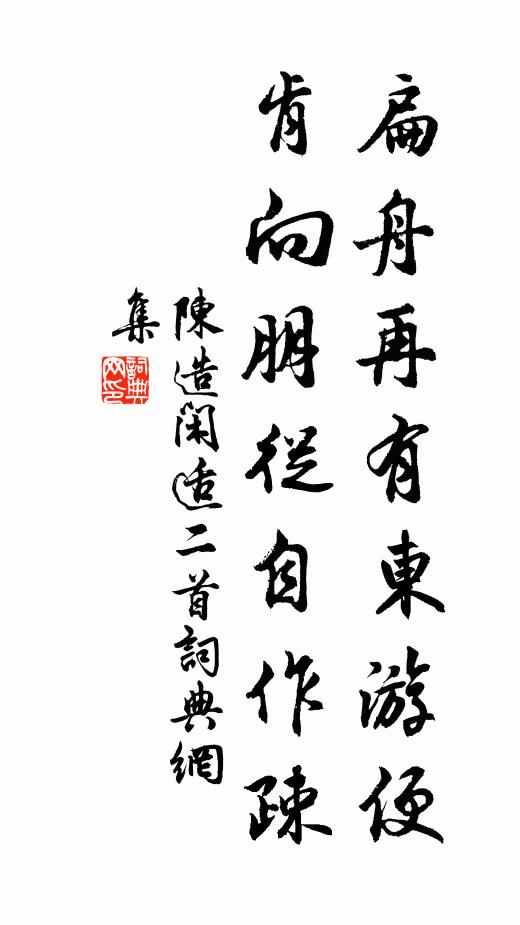 扁舟再有東游便
肯向朋從自作疎
陳造閑适二首詞典網
集
詞典网印